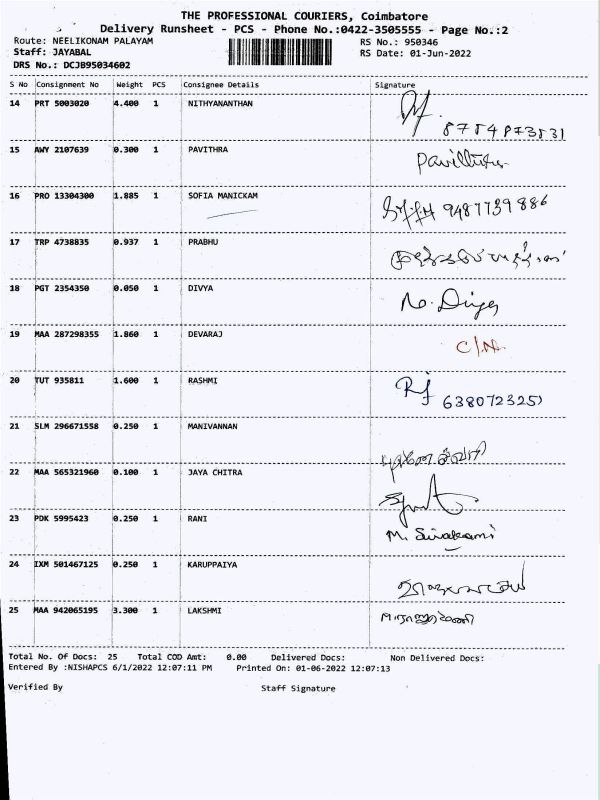 THE PROFESSIONAL COURIERS, Coimbatore
Delivery Runsheet - PCS - Phone No.:0422-3505555 - Page No.:2
Route: NEELIKONAM PALAYAM RS No.: 950346
Staff: JAYABAL RS Date: 01-Jun-2022
DRS No.: DCJB95034602
S No Consignment No Weight PCS Consignee Details Signature
14 PRT 5003020 4.400 1 NITHYANANTHAN
15 AWY 2107639 0.300 1 PAVITHRA
16 PRO 13304300 1.885 1 SOFIA MANICKAM 9487739886
17 TRP 4738835 0.937 1 PRABHU
18 PGT 2354350 0.050 1 DIVYA
19 MAA 287298355 1.860 1 DEVARAJ
20 TUT 935811 1.600 1 RASHMI
21 SLM 296671558 0.250 1 MANIVANNAN
22 MAA 565321960 0.100 1 JAYA CHITRA
23 PDK 5995423 0.250 1 RANI
24 IXM 501467125 0.250 1 KARUPPAIYA
25 MAA 942065195 3.300 1 LAKSHMI
Total No. Of Docs: 25 Total COD Amt: 0.00 Delivered Docs: Non Delivered Docs:
Entered By :NISHAPCS 6/1/2022 12:07:11 PM Printed On: 01-06-2022 12:07:13
Verified By Staff Signature